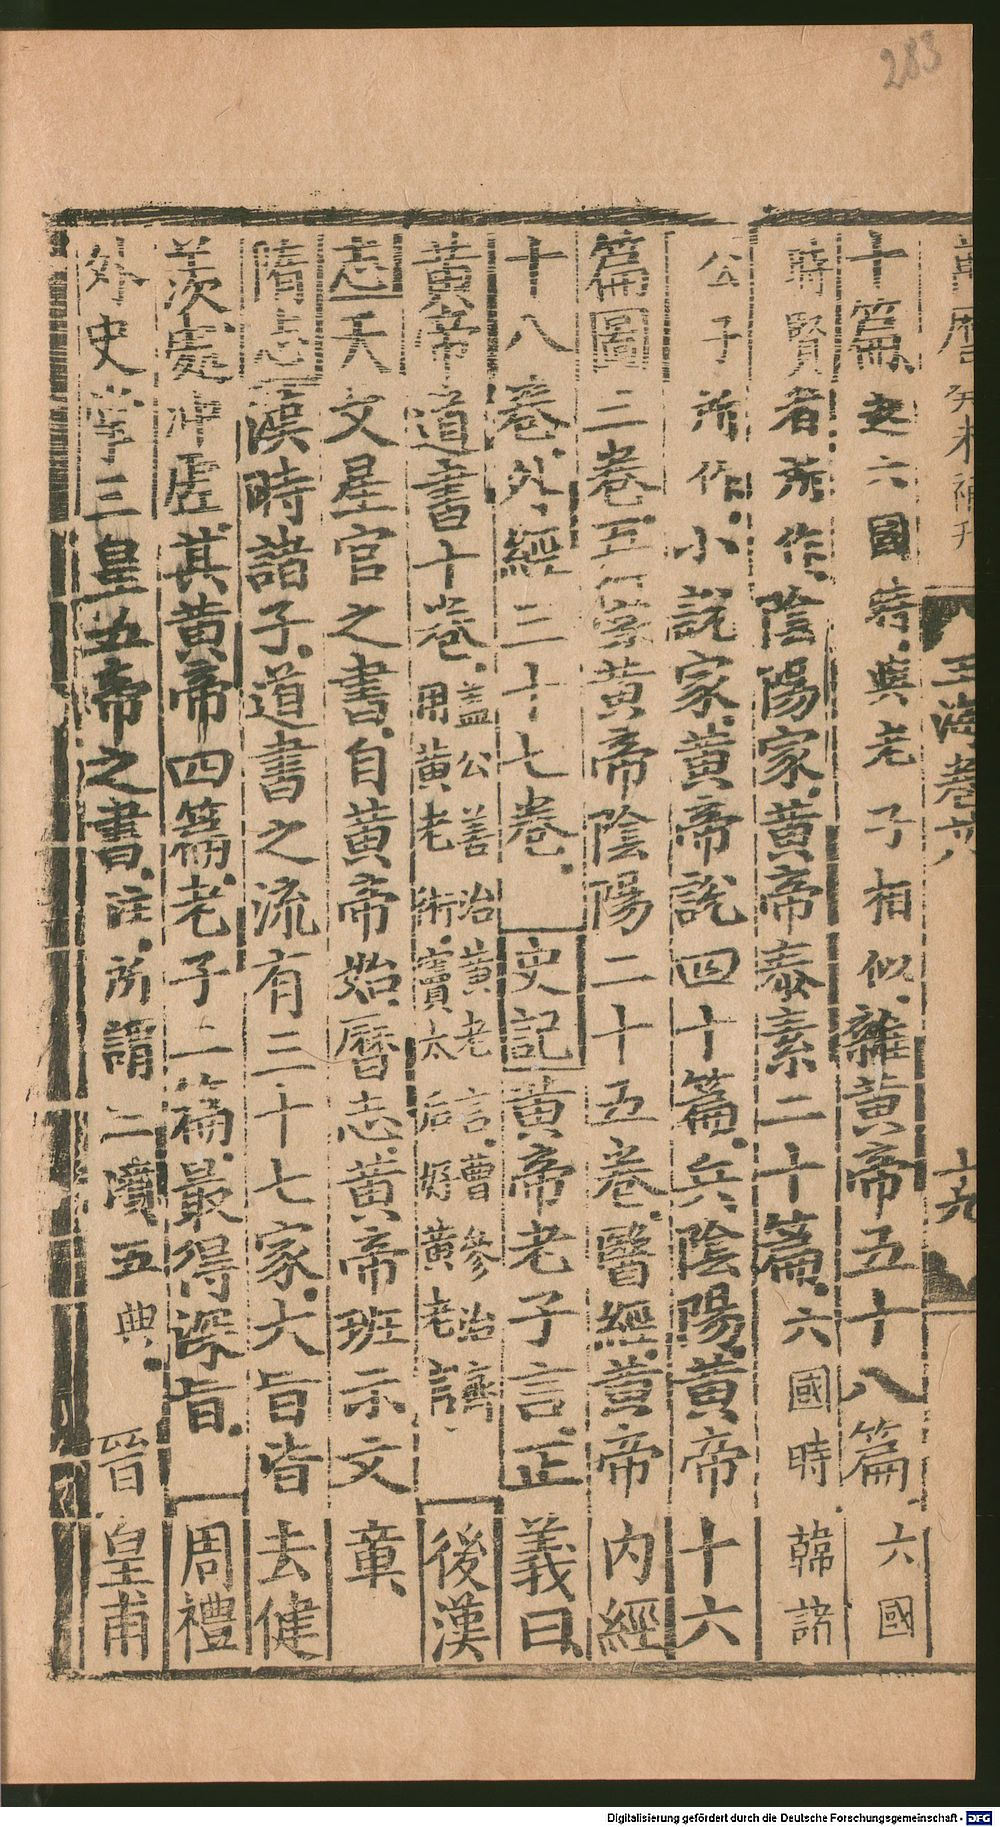 283
萬曆癸未補刋
玉海卷六
十九
十篇起六國時與老子相似雜黃帝五十八篇六國
時賢者所作陰陽家黃帝泰素二十篇六國時韓諸
公子所作小說家黃帝說四十篇兵陰陽黃帝十六
篇圖三卷五行家黃帝陰陽二十五卷醫經黃帝內經
十八卷外經三十七卷史記黃帝老子言正義曰
黃帝道書十卷蓋公善治黃老言曹參治齊用黃老術竇太后好黃老言後漢
志天文星官之書自黃帝始曆志黃帝班示文章
隋志漢時諸子道書之流有三十七家大旨皆去健
羨處冲虛其黃帝四篇老子二篇最得深旨周禮
外史掌三皇五帝之書註所謂三墳五典晉皇甫
Digitalisierung gefördert durch die Deutsche Forschungsgemeinschaft - DFG